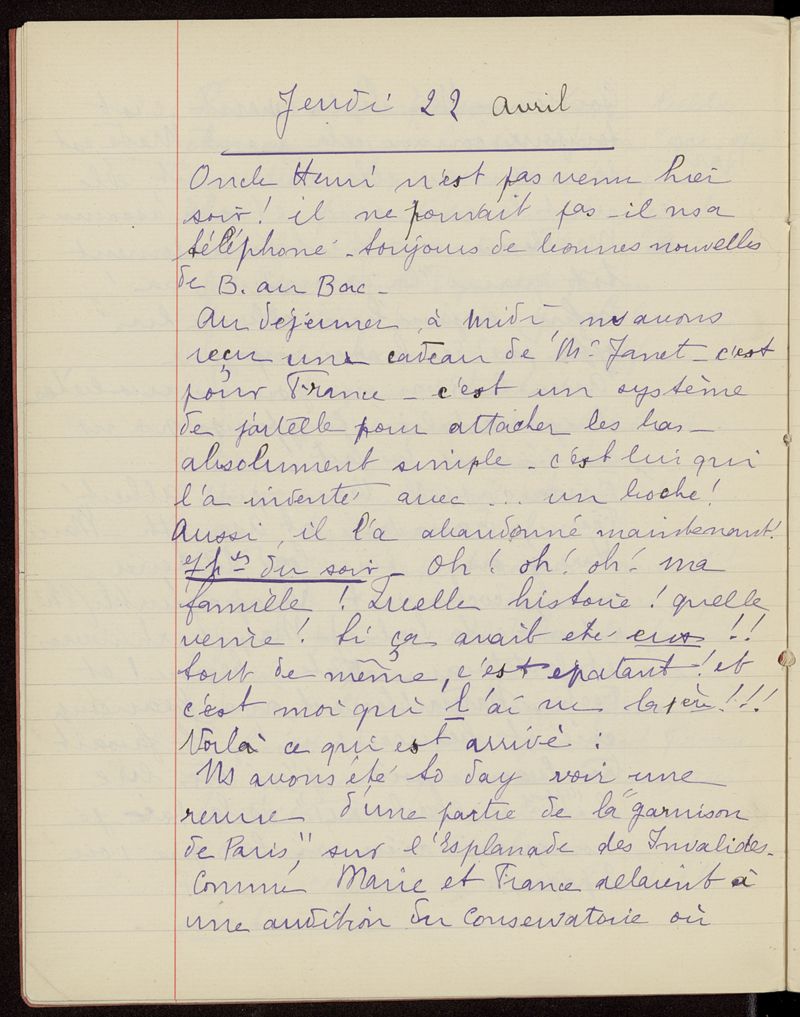 Jeudi 22 avril
Oncle Henri n'est pas venu hier
soir! il ne pouvait pas - il ns a
téléphoné - toujours de bonnes nouvelles
de B. au Bac -
Au déjeuner, à midi, ns avons
reçu une cadeau de Mr Janet - c'est
pour France - c'est un système
de jartelle pour attacher les bas -
absolument simple - c'est lui qui
l'a inventé avec ... un boche!
Aussi, il l'a abandonné maintenant!
7h du soir - Oh! oh! oh! ma
famille! Quelle histoire! quelle
veine! Si ça avait été eux!!
tout de même, c'est epatant! et
c'est moi qui l'ai vu la 1ère!!!
Voilà ce qui est arrivé:
Ns avons été to day voir une
revue d'une partie de la "garnison
de Paris", sur l'Esplanade des Invalides.
Comme Marie et France allaient à
une audition du Conservatoire où